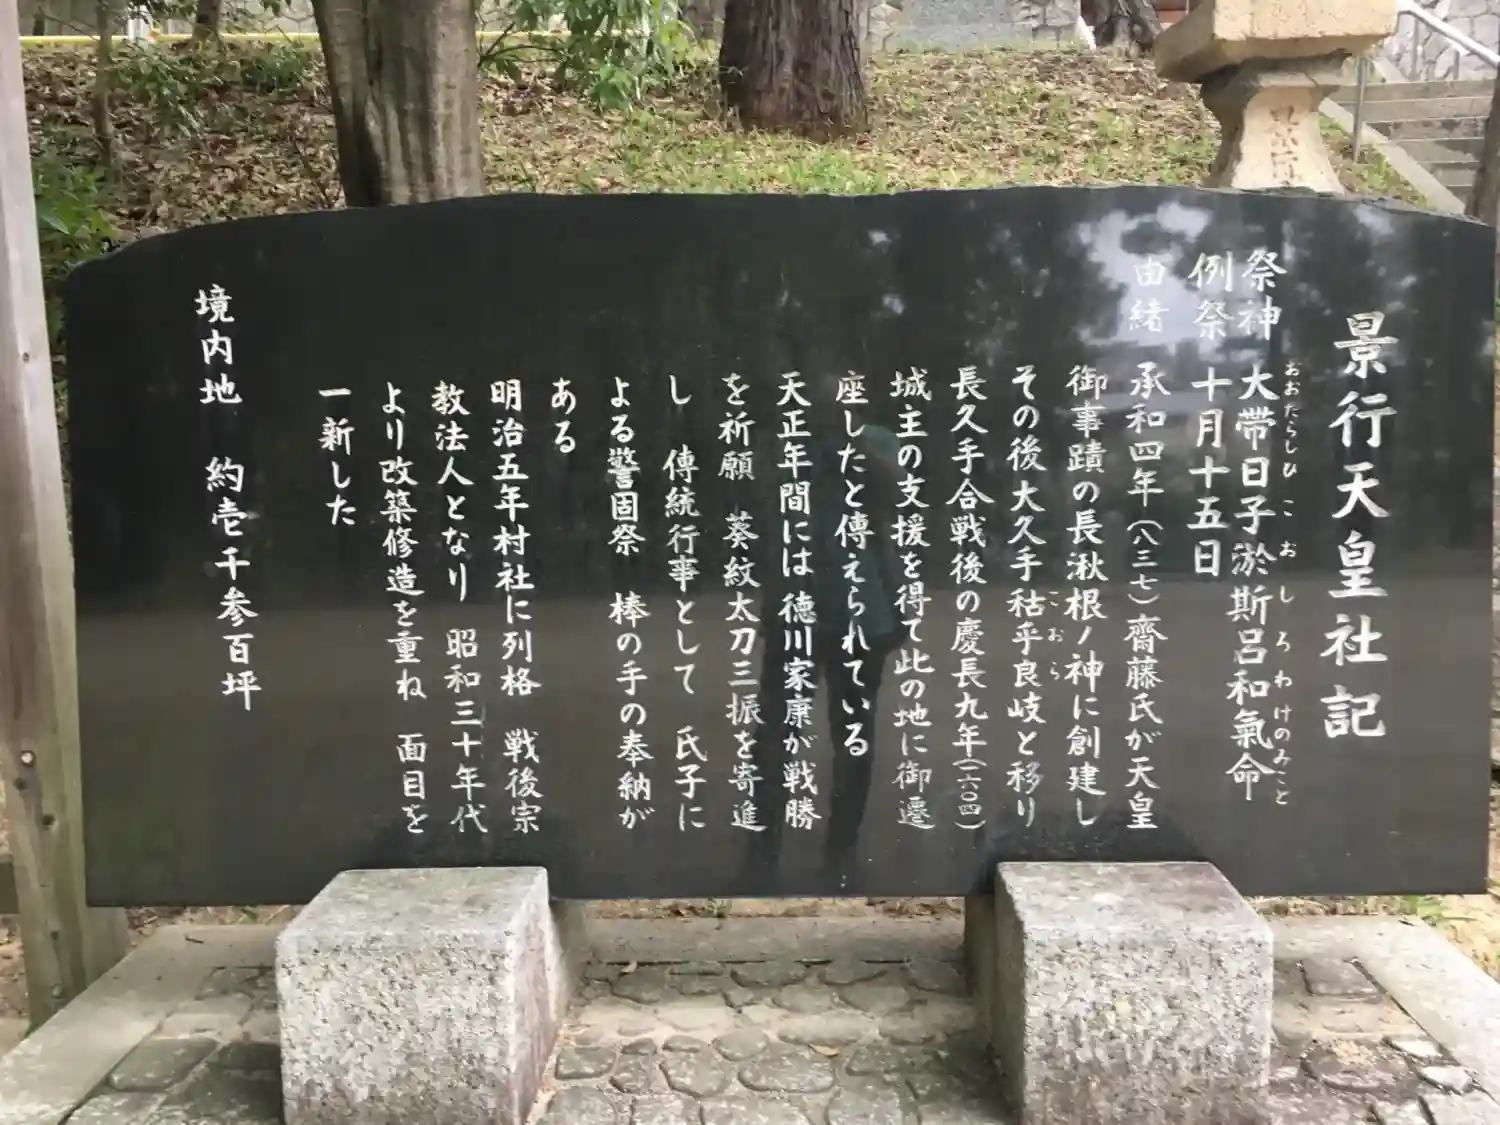 景行天皇社記
祭神 大帯日子淤斯呂和氣命
おおたらしひこおしろわけのみこと
例祭 十月十五日
由緒 承和四年(八三七)齋藤氏が天皇
御事蹟の長湫根ノ神に創建し
その後大久手秥乎良岐と移り
こおら
長久手合戦後の慶長九年(一六〇四)
城主の支援を得て此の地に御遷
座したと傳えられている
天正年間には徳川家康が戦勝
を祈願 葵紋太刀三振を寄進
し 傳統行事として 氏子に
よる警固祭 棒の手の奉納が
ある
明治五年村社に列格 戦後宗
教法人となり 昭和三十年代
より改築修造を重ね 面目を
一新した
境内地 約壱千参百坪
景行